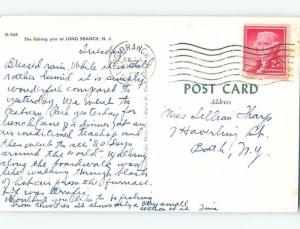 D-168
The fishing pier at LONG BRANCH, N. J.
Tuesday
Blessed rain. While it is still
rather humid it is simply
wonderful compared to
yesterday. We went to
Asbury Park yesterday for
lunch
air conditioned teashop and
then went to see "80 Days
around the world". Walking
along the boardwalk was
like walking through blasts
of hot air from the furnace.
It was terrific.
Wouldn't you like to be
from this?
section of it
LONG BRANCH
POST CARD
Address
Miss Lillian Tharp
7 Haverling St.
Bath, N.Y.
2¢